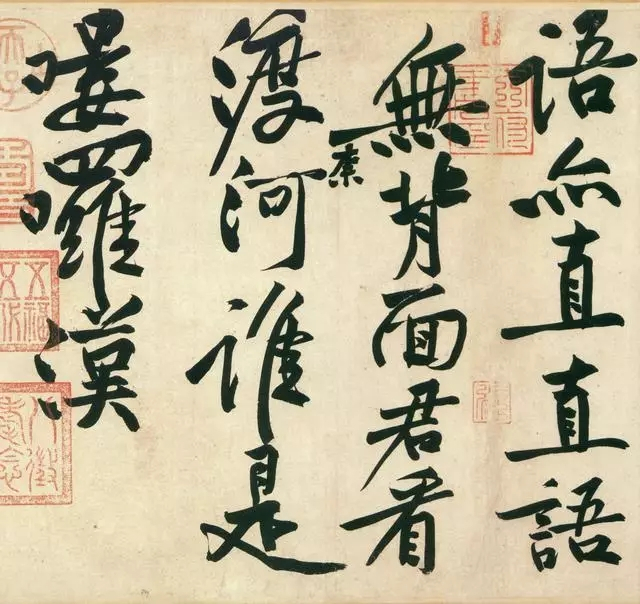 語亦直直語
無背面君看
渡柰河誰是
嘍囉漢